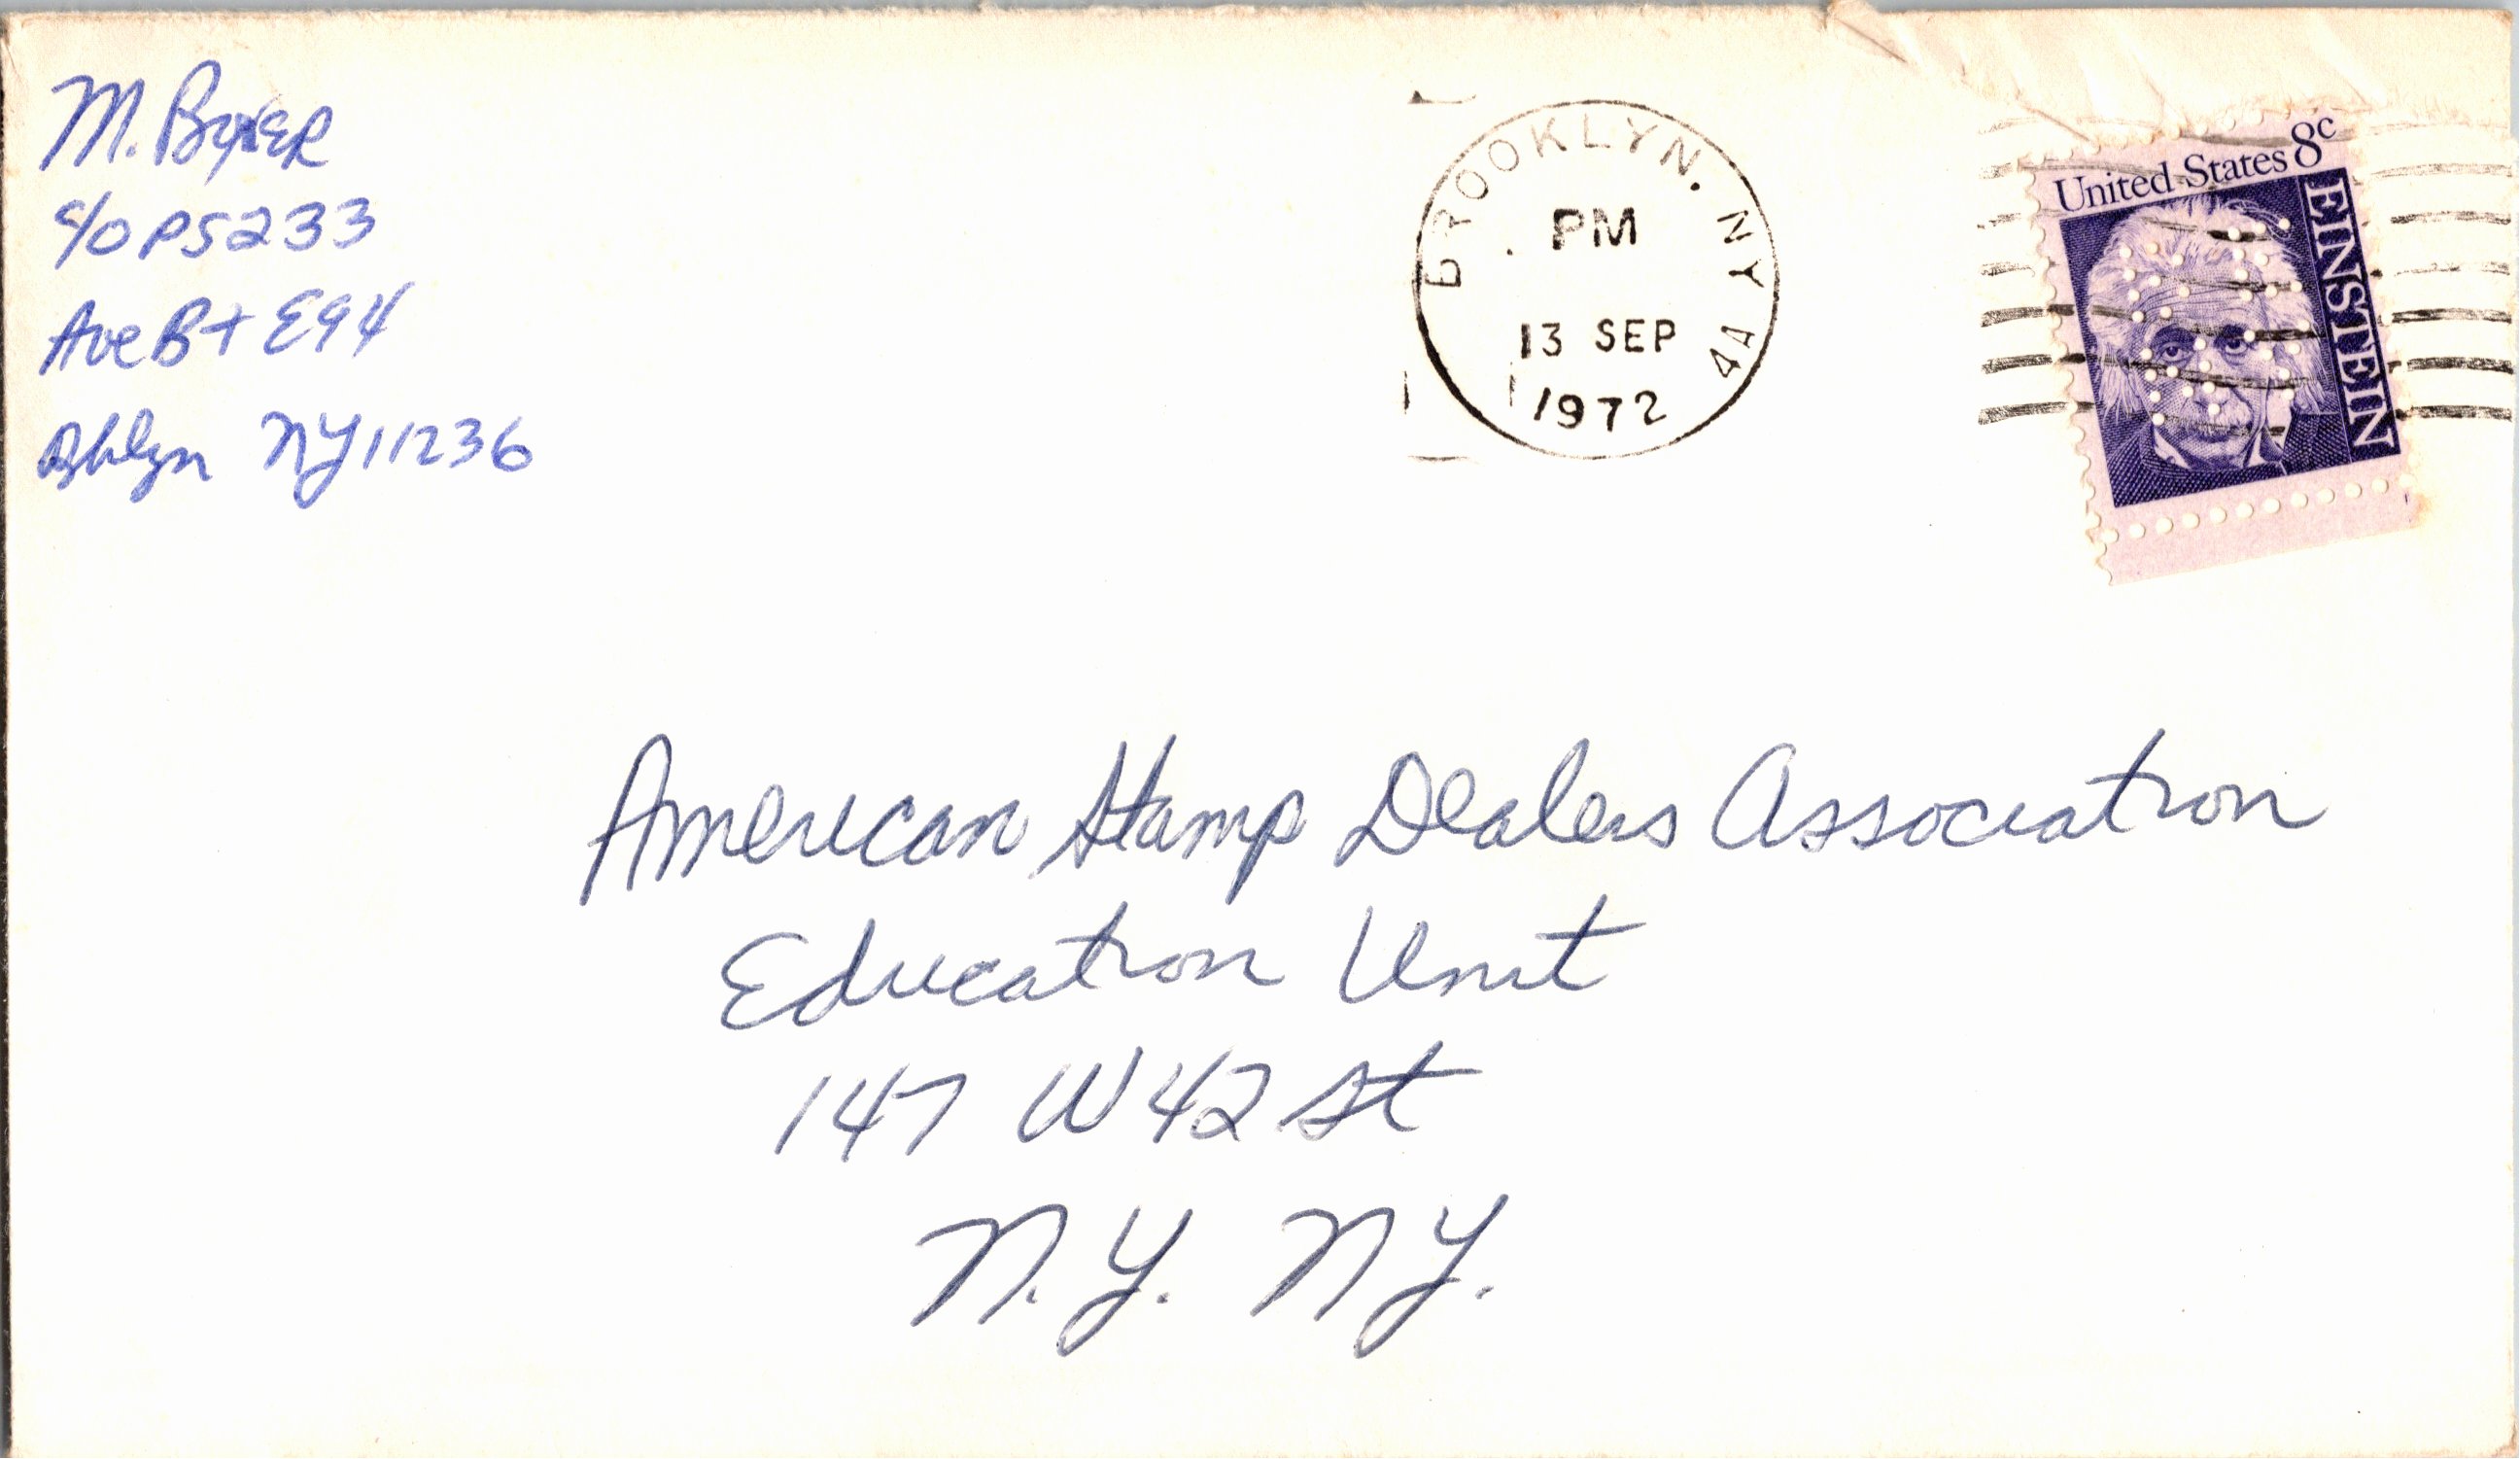 M. Byer
c/o PS233
Ave B + E94
Bklyn NY 11236
BROOKLYN, NY 4A
PM
13 SEP
1972
United States 8c
EINSTEIN
American Stamp Dealers Association
Education Unit
147 W 42 St
N.Y. NY.